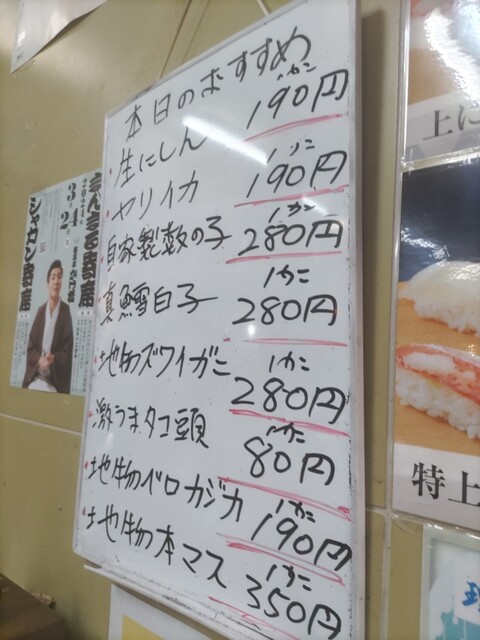 本日のおすすめ
・生にしん 1カン 190円
・ヤリイカ 1カン 190円
・自家製数の子 1カン 280円
・真鱈白子 1カン 280円
・地物ズワイガニ 1カン 280円
・激うまタコ頭 1カン 80円
・地物ベロカジカ 1カン 190円
・地物本マス 1カン 350円
まんきち寄席
シャカン寄席
2024
3
4
2
上に
特上